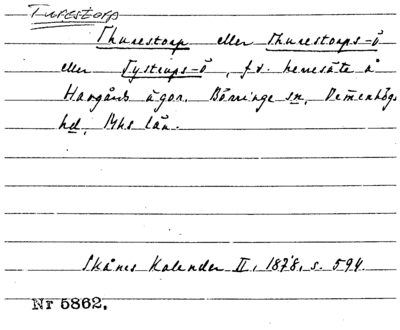 Turestorp
Thurestorp eller Thurestorps-ö
eller Tystrups-ö, f.d. herresäte å
Havgårds ägor. Börringe sn, Vemmenhögs
hd, Mhs län.
Skånes Kalender II, 1878, s. 594.
Nr 5862.